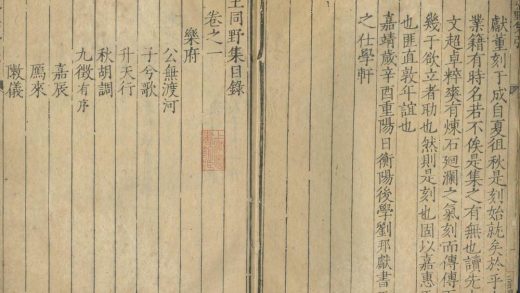 獻重刻于成自夏徂秋是刻始就矣於乎
業籍有時名若不俟是集之有無也讀先
文超卓粹爽有煉石廻瀾之氣刻而傳傳
幾于欲立者助也然則是刻也固以嘉惠
也匪直敦年誼也
嘉靖歲辛酉重陽日衡陽後學劉那獻書
之仕學軒
王同野集目錄
卷之一
樂府
公無渡河
子今歌
升天行
秋胡調
九徵有序
嘉辰
鴈來
敞儀